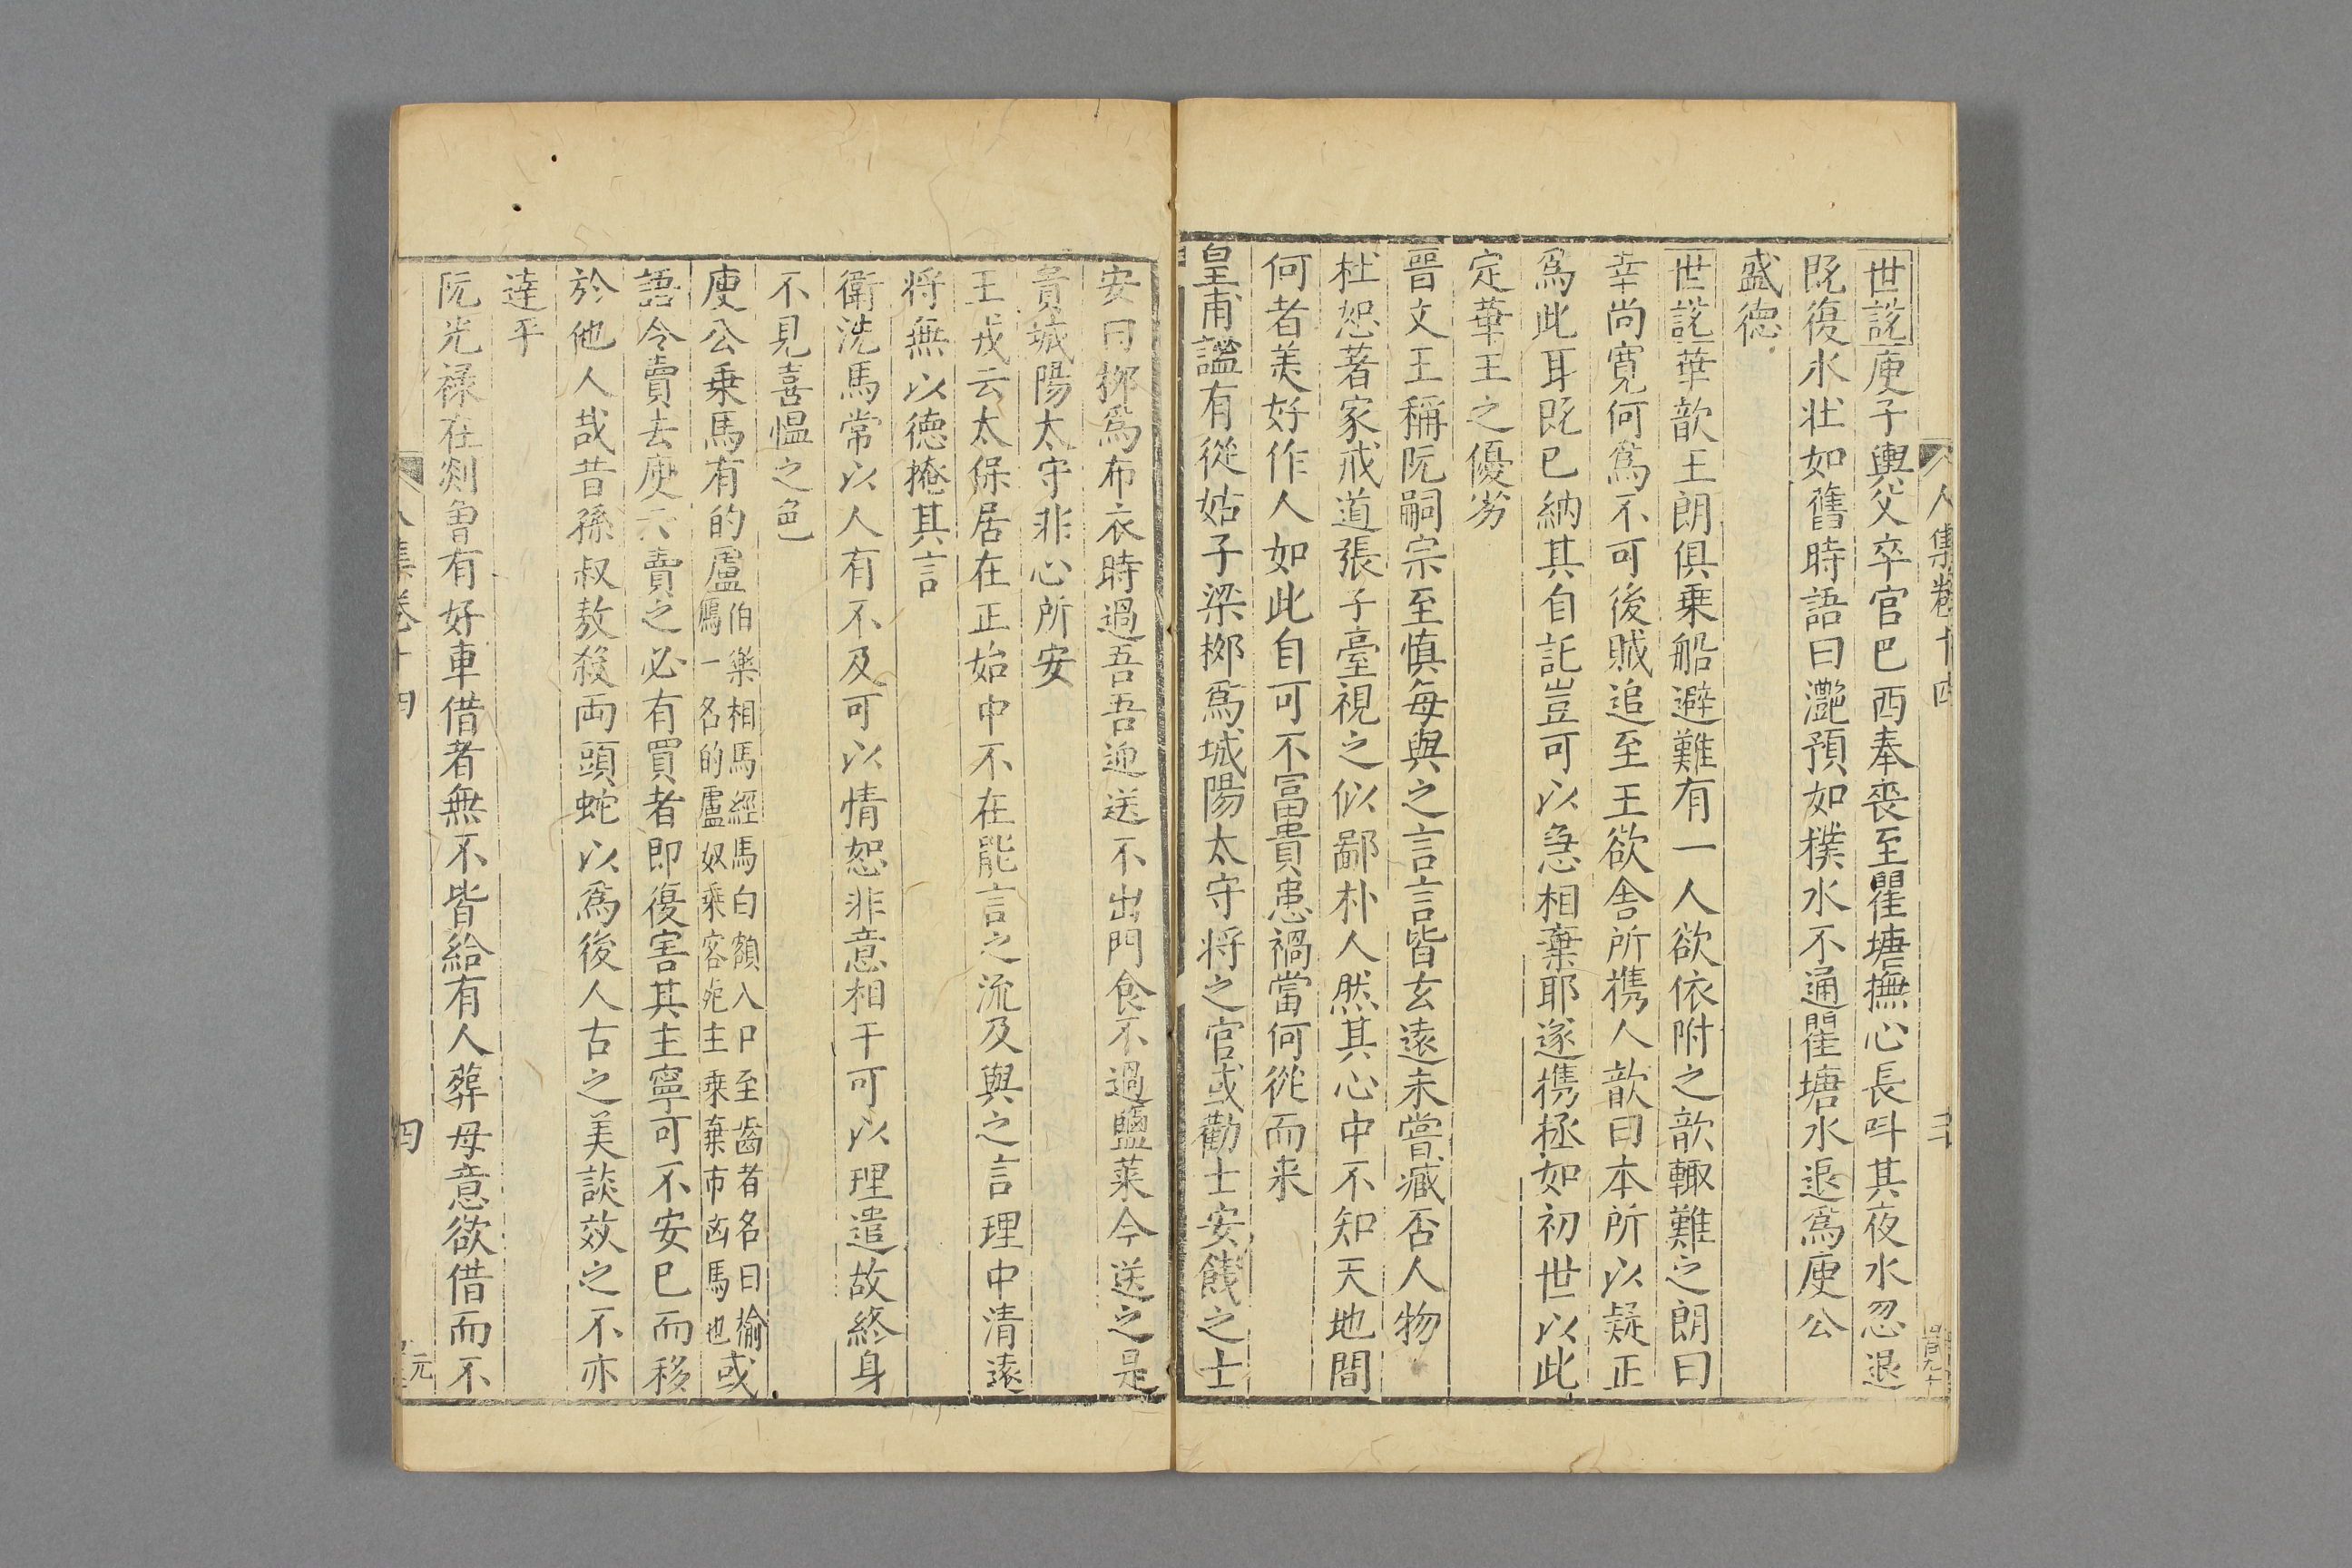 人集卷十四
三
世説庾子輿父卒官巴西奉喪至瞿塘撫心長呌其夜水忽退
既復水壮如舊時語曰灧預如樸水不通瞿塘水退爲庾公
盛徳
世説華歆王朗俱乗船避難有一人欲依附之歆輙難之朗曰
幸尚寛何爲不可後賊追至王欲舎所携人歆曰本所以疑正
爲此耳既已納其自託豈可以急相棄耶遂携拯如初世以此
定華王之優劣
晋文王稱阮嗣宗至慎每與之言言皆玄遠未嘗臧否人物
杜恕著家戒道張子臺視之似鄙朴人然其心中不知天地間
何者美好作人如此自可不富貴患禍當何從而来
皇甫謐有從姑子梁栁爲城陽太守将之官或勸士安餞之士
安曰栁爲布衣時過吾吾迎送不出門食不過鹽菜今送之是
貴城陽太守非心所安
王戎云太保居在正始中不在能言之流及與之言理中清遠
将無以徳掩其言
衛洗馬常以人有不及可以情恕非意相干可以理遣故終身
不見喜愠之色
庾公乗馬有的盧伯樂相馬經馬白額入口至齒者名曰榆
鴈一名的盧奴乗客死主乗棄市凶馬也或
語令賣去庾云賣之必有買者即復害其主寧可不安已而移
於他人哉昔孫叔敖殺両頭蛇以爲後人古之美談效之不亦
達乎
阮光禄在剡曽有好車借者無不皆給有人葬母意欲借而不
人集卷十四
四
元